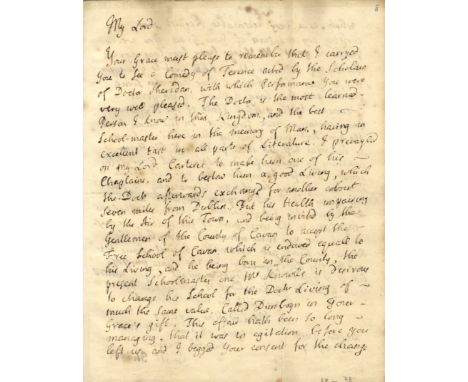 8
My Lord
Your Grace must please to remember that I carryed
you to see a Comedy of Terence acted by the Scholars
of Doctr Sheridan, with which Performance you were
very well pleased. The Doctr is the most learned
Person I know in this Kingdom, and the best
School-master here in the memory of Man, having an
excellent Tast in all parts of Literature. I prevayled
on my Lord Carteret to make him one of his
Chaplains, and to bestow him a good Living, which
the Doctr afterwards exchangd for another about
seven miles from Dublin. But his Health impairing
by the Air of this Town, and being invited by the
Gentlemen of the County of Cavan to accept the
Free School of Cavan which is endowed equall to
his Living, and he being born in the County, the
present Schoolmaster one Mr Knowles is desirous
to change his School for the Doctrs Living of
much the same value, Called Dunbogn in Your
Grace's gift. This affair hath been so long
managing, that it was in agitation before you
left us, and I begged Your Consent for the change